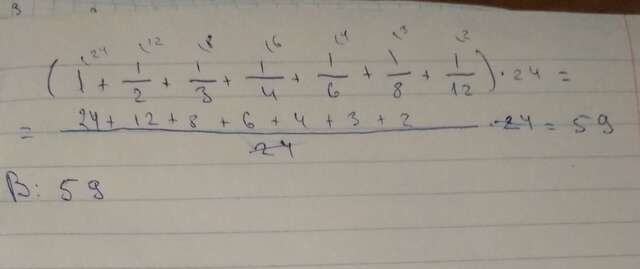 (1\24 + 1/2\12 + 1/3\8 + 1/4\6 + 1/6\4 + 1/8\3 + 1/12\2) · 24 =
= (24 + 12 + 8 + 6 + 4 + 3 + 2)/24 · 24 = 59
В: 59